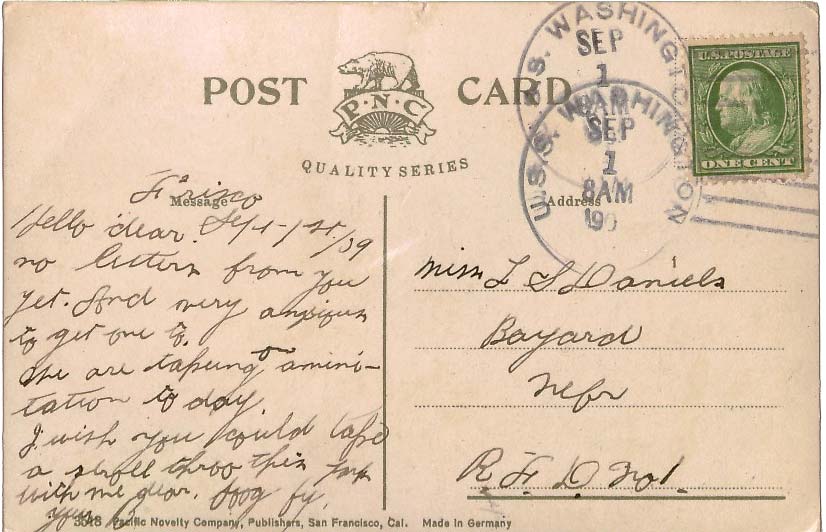 POST CARD
P·N·C
QUALITY SERIES
U.S. POSTAGE
ONE CENT
U.S.S. WASHINGTON
SEP
1
8AM
U.S.S. WASHINGTON
SEP
1
8AM
190
Message
Address
Frisco
Hello dear. Sept-1st/09
no letters from you
yet. And very anxious
to get one to.
We are takeing on amini-
tation to day.
I wish you could take
a stroll throo this
with me dear.
Miss L S Daniels
Bayard
Nebr
R. F. D. No 1.
3518 Pacific Novelty Company, Publishers, San Francisco, Cal. Made in Germany